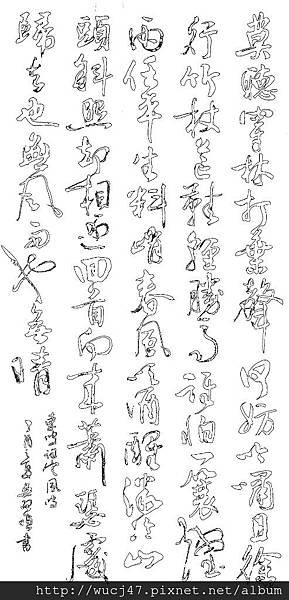 莫聽穿林打葉聲何妨吟嘯且徐
行竹杖芒鞋輕勝馬誰怕一蓑煙
雨任平生料峭春風吹酒醒微冷山
頭斜照却相迎回首向來蕭瑟處
歸去也無風雨也無晴
http://wucj47.pixnet.net/album